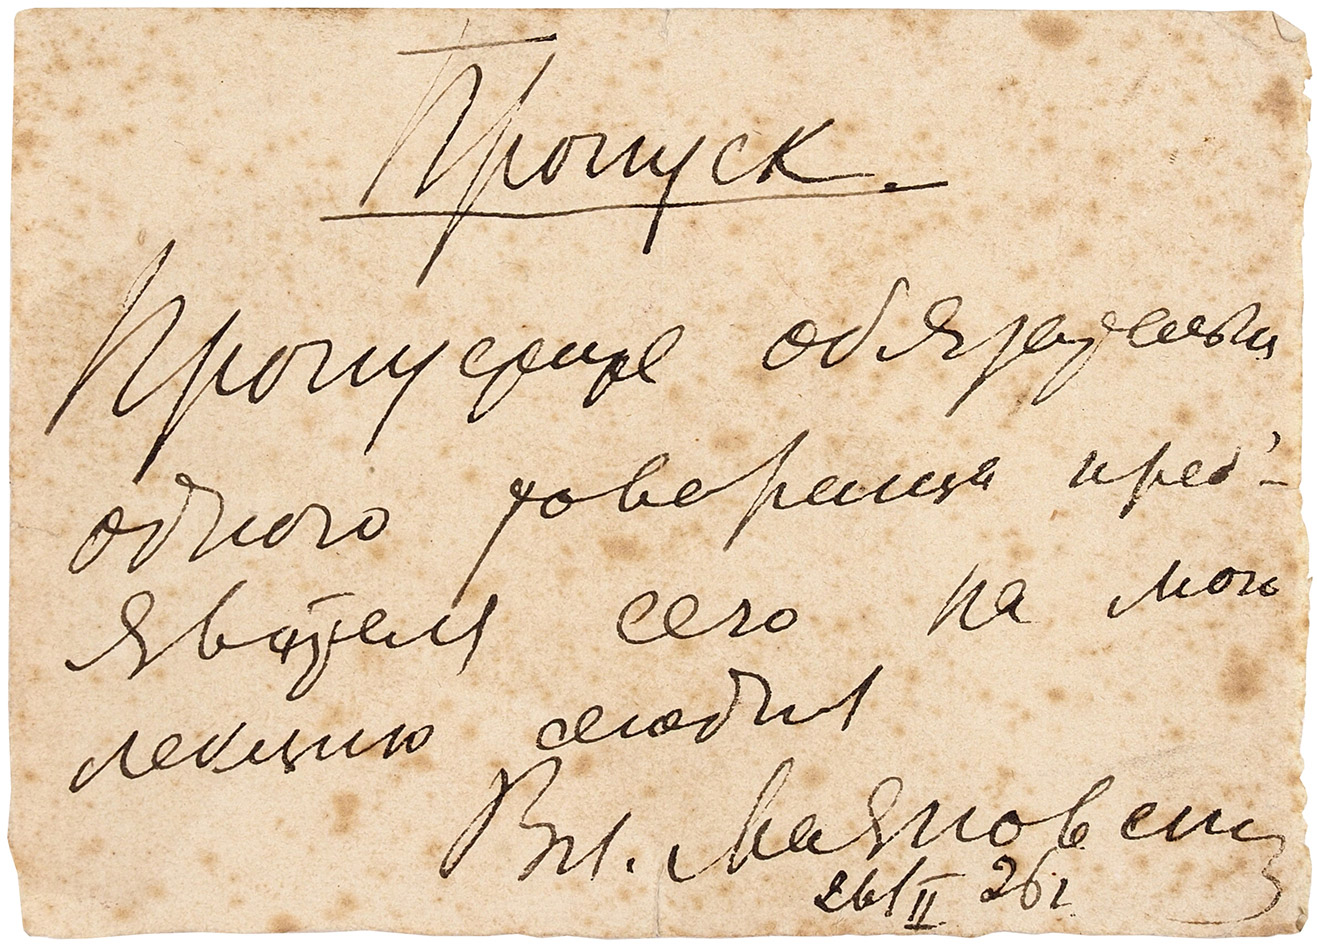 Пропуск.
Пропустите обязательно
одного товарища пред'-
явителя сего на мою
лекцию сегодня
Вл. Маяковский
26/II 26 г.